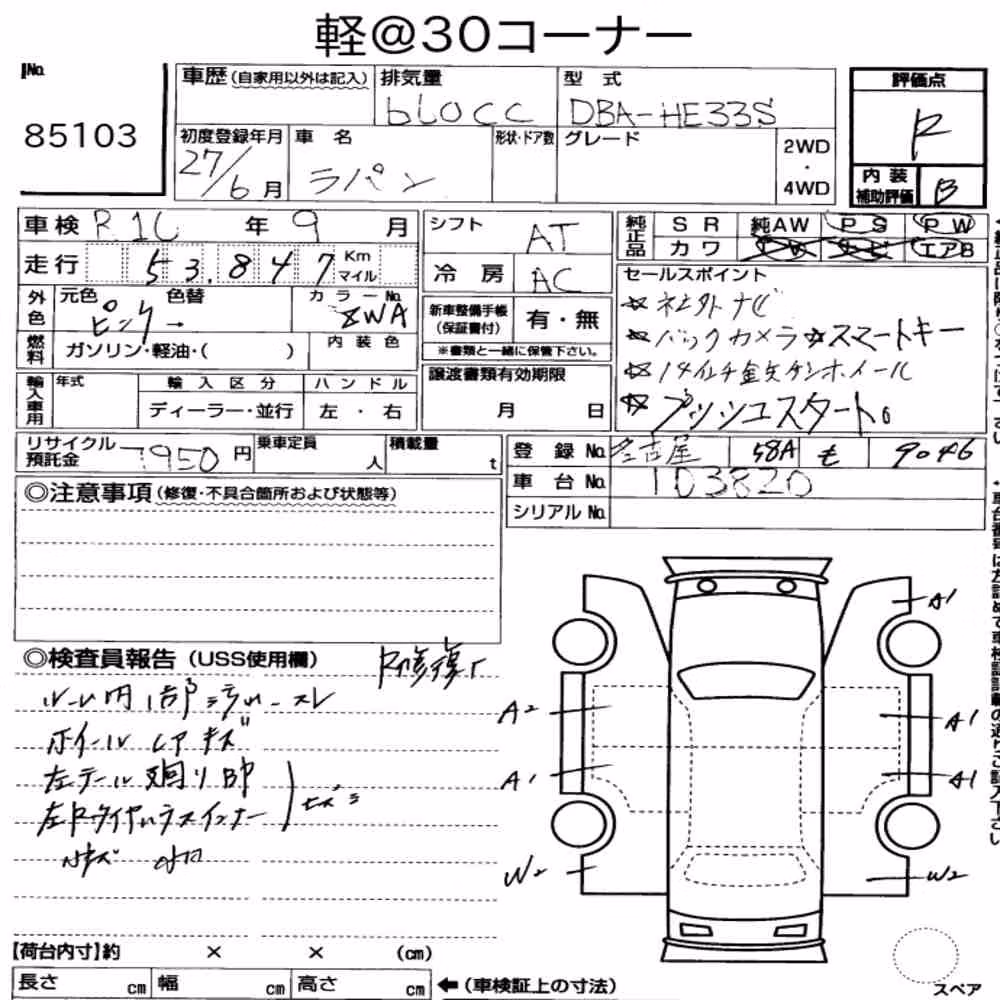 軽@30コーナー
No.
85103
車歴 (自家用以外は記入)
排気量
660cc
型 式
DBA-HE33S
評価点
R
初度登録年月
27/6月
車 名
ラパン
形状・ドア数
グレード
2WD
・
4WD
内 装
補助評価
B
車検 R 10 年 9 月
走行 53,847 Km
マイル
シフト
AT
冷 房
AC
純正品
S R 純AW P S P W
カ ワ エアB
セールスポイント
☆社外ナビ
☆バックカメラ ☆スマートキー
☆14インチ金矢ケンホイール
☆プッシュスタート。
外色
元色
ピンク
色替
カラーNo.
ZWA
燃料
ガソリン・軽油・( )
内 装 色
新車整備手帳
(保証書付)
有・無
※書類と一緒に保管下さい。
輸入車用
年式
輸 入 区 分
ハ ン ド ル
ディーラー・並行
左 ・ 右
譲渡書類有効期限
月 日
リサイクル
預託金
7950円
乗車定員
人
積載量
t
登 録 No.
名古屋 58A も 9046
車 台 No.
103820
シリアル No.
◎注意事項 (修復・不具合箇所および状態等)
◎検査員報告 (USS使用欄)
R修復
ルーム内
ホイール キズ
左テール廻り部
左Rタイヤハウスインナー
小キズ 凹
A1
A2
A1
A1
A1
W2
W2
【荷台内寸】約 × × (cm)
長さ cm 幅 cm 高さ cm
←(車検証上の寸法)
スペア